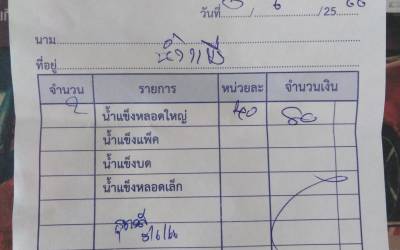 วันที่ 5 / 6 / 25 66
นาม
ที่อยู่
จำนวน รายการ หน่วยละ จำนวนเงิน
2 น้ำแข็งหลอดใหญ่ 40 80
น้ำแข็งแพ็ค
น้ำแข็งบด
น้ำแข็งหลอดเล็ก
5/6/66